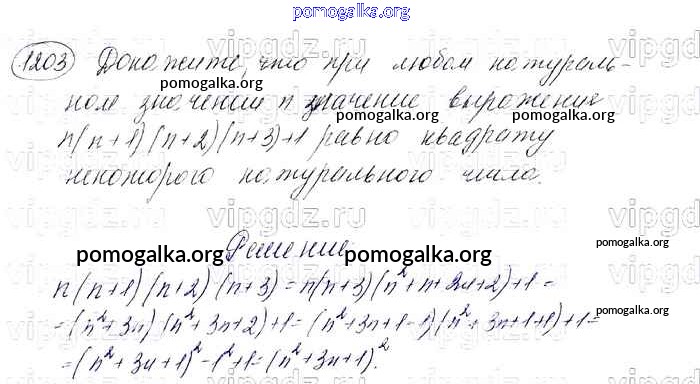 pomogalka.org
1203 Докажите, что при любом натураль-
pomogalka.org
ном значении n значение выражения
pomogalka.org
n(n+1)(n+2)(n+3)+1 равно квадрату
некоторого натурального числа.
vipgdz.ru
pomogalka.org
Решение:
pomogalka.org
pomogalka.org
n(n+1)(n+2)(n+3) = n(n+3)(n²+n+2n+2)+1=
=(n²+3n)(n²+3n+2)+1=(n²+3n+1-1)(n²+3n+1+1)+1=
=(n²+3n+1)²-1²+1=(n²+3n+1)².
pomogalka.org
pomogalka.org
pomogalka.org